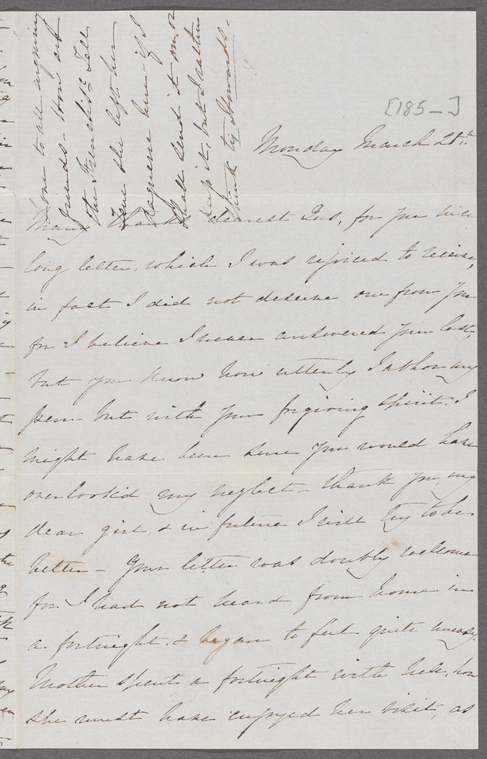 [185-]
Monday March 28th
Many thanks dearest Sus, for your nice
long letter, which I was rejoiced to receive,
in fact I did not deserve one from you
for I believe I never answered your last,
but you know how utterly I abhor my
pen but with your forgiving spirit I
might have been sure you would have
overlook'd my neglect - thank you, my
dear girl, & in future I will try to do
better - Your letter was doubly welcome
for I had not heard from home in
a fortnight, & began to feel quite uneasy
Mother spent a fortnight with how
she must have enjoyed her visit, as
love to all enquiring
friends - How are
the Tell
she left her
here if I
shall send it on or
keep it, but I rather
think